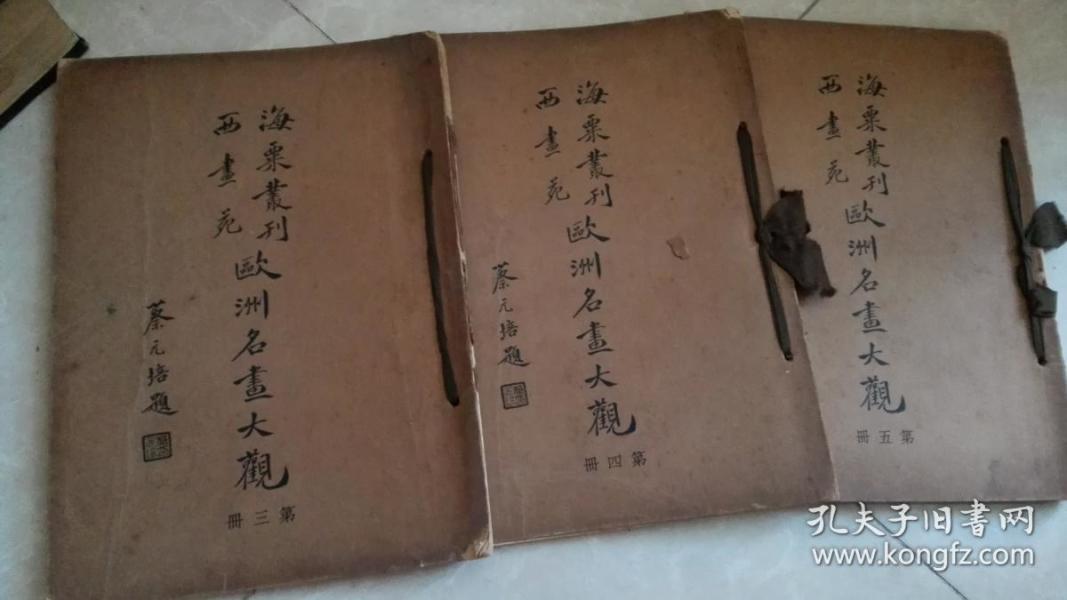 海粟叢刊
西畫苑
歐洲名畫大觀
蔡元培題
第三冊
海粟叢刊
西畫苑
歐洲名畫大觀
蔡元培題
第四冊
海粟叢刊
西畫苑
歐洲名畫大觀
第五冊
孔夫子旧書网
www.kongfz.com